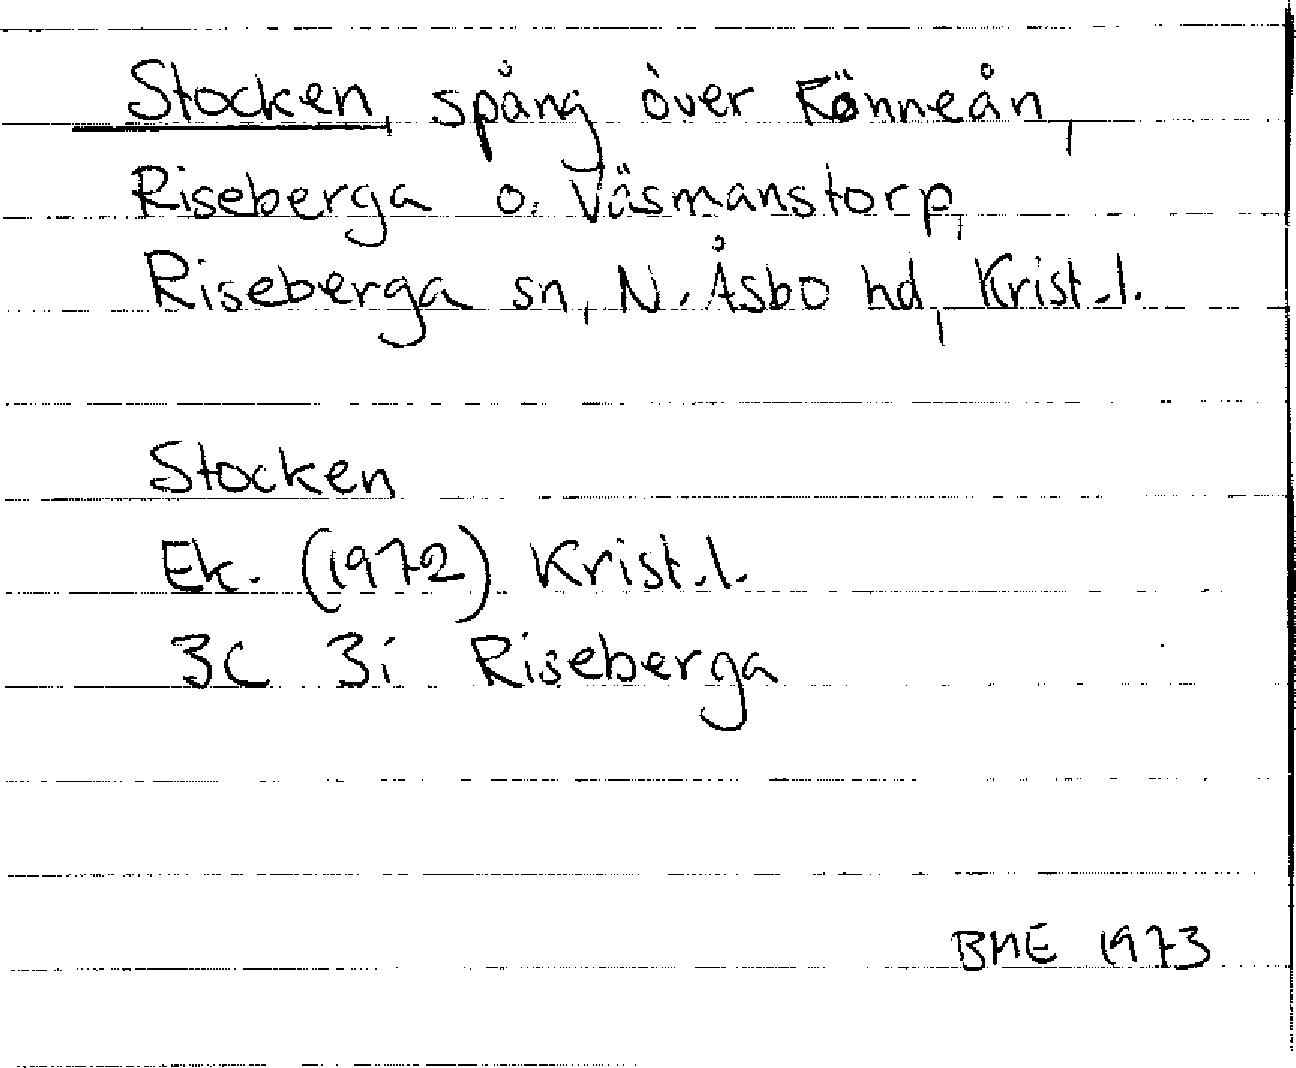 Stocken, spång över Rönneån,
Riseberga o. Väsmanstorp,
Riseberga sn, N. Åsbo hd, Krist.l.
Stocken
Ek. (1972) Krist.l.
3C 3i Riseberga
BME 1973